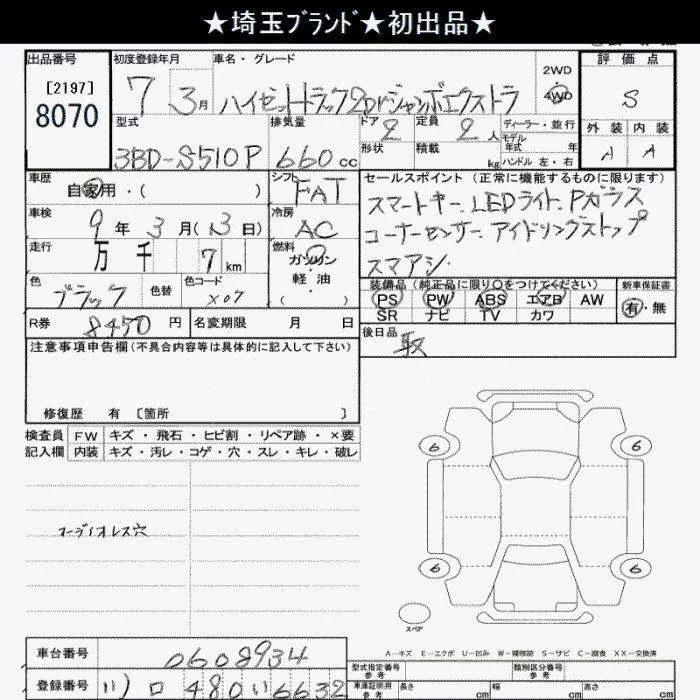 ★埼玉ﾌﾞﾗﾝﾄﾞ★初出品★
出品番号
[2197]
8070
初度登録年月
7 3月
車名・グレード
ハイゼットトラック2Drジャンボエクストラ
2WD
4WD
評価点
S
外装 内装
A A
型式
3BD-S510P
排気量
660cc
ドア 2
形状
定員 2人
積載 kg
ディーラー・並行
モデル
年式 年
ハンドル 左・右
車歴
自家用・( )
シフト
FAT
車検
9年3月(13日)
冷房
AC
走行
万千 7km
燃料
ガソリン
・
軽油
( )
色
ブラック
色替
色コード
X07
R券
8450円
名変期限 月 日
セールスポイント (正常に機能するものに限ります)
スマートキー、LEDライト、Pガラス
コーナーセンサー、アイドリングストップ
スマアシ.
装備品(純正品に限り○をつけてください)
PS PW ABS エアB AW
SR ナビ TV カワ
新車保証書
有・無
後日品
取
注意事項申告欄(不具合内容等は具体的に記入して下さい)
修復歴 有 [箇所 ]
検査員 FW キズ・飛石・ヒビ割・リペア跡・×要
記入欄 内装 キズ・汚レ・コゲ・穴・スレ・キレ・破レ
オーディオレス穴
6 6
6 6
スペア
A-キズ E-エクボ U-凹み W-補修跡 S-サビ C-腐食 XX-交換済
車台番号
0608934
登録番号
480 い 6632
型式指定番号
参考
類別区分番号
参考
車庫証明用
参考
長さ cm
幅 cm
高さ cm